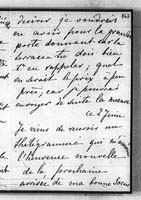 désirer je voudrais
en avoir pour la grande
porte donnant sur la
terrasse tu dois bien
t'en rappeler, quel
en serait le prix à peu
près, car je pourrai
envoyer de suite la mesure
ce 2 Juin
Je viens de recevoir un
télégramme qui
l'heureuse nouvelle
de la prochaine
arrivée de ma bonne Soeur